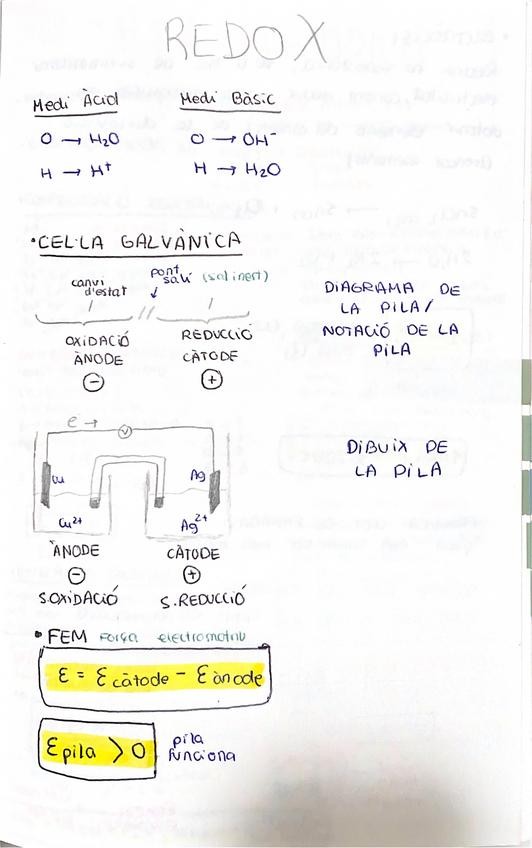 REDOX
Medi Àcid
Medi Bàsic
O → H₂O
O → OH⁻
H → H⁺
H → H₂O
• CEL·LA GALVÀNICA
canvi d'estat
pont salí (sal inert)
/ // /
OXIDACIÓ
ÀNODE
⊖
REDUCCIÓ
CÀTODE
⊕
DIAGRAMA DE
LA PILA/
NOTACIÓ DE LA
PILA
e⁻ →
V
Cu
Ag
Cu²⁺
Ag²⁺
ÀNODE
⊖
S.OXIDACIÓ
CÀTODE
⊕
S.REDUCCIÓ
DIBUIX DE
LA PILA
• FEM Força electromotriu
Ɛ = Ɛ càtode - Ɛ ànode
Ɛ pila > 0
pila
funciona